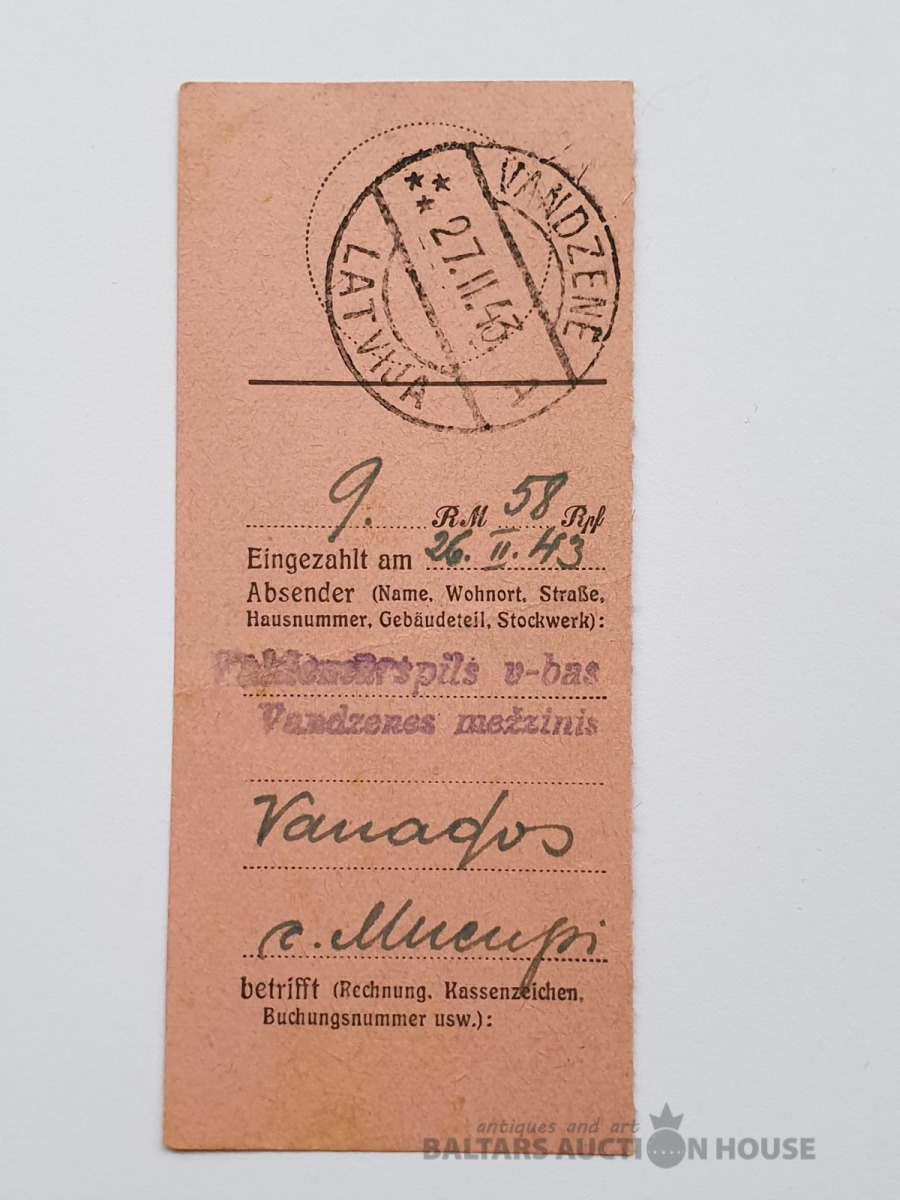 VANDZENE
LATVIJA
27.II.43
A
9. RM 58 Rpf
Eingezahlt am 26. II. 43
Absender (Name, Wohnort, Straße,
Hausnummer, Gebäudeteil, Stockwerk):
v-bas
Vandzenes mežzinis
Vanagos
betrifft (Rechnung, Kassenzeichen,
Buchungsnummer usw.):
antiques and art
BALTARS AUCTION HOUSE